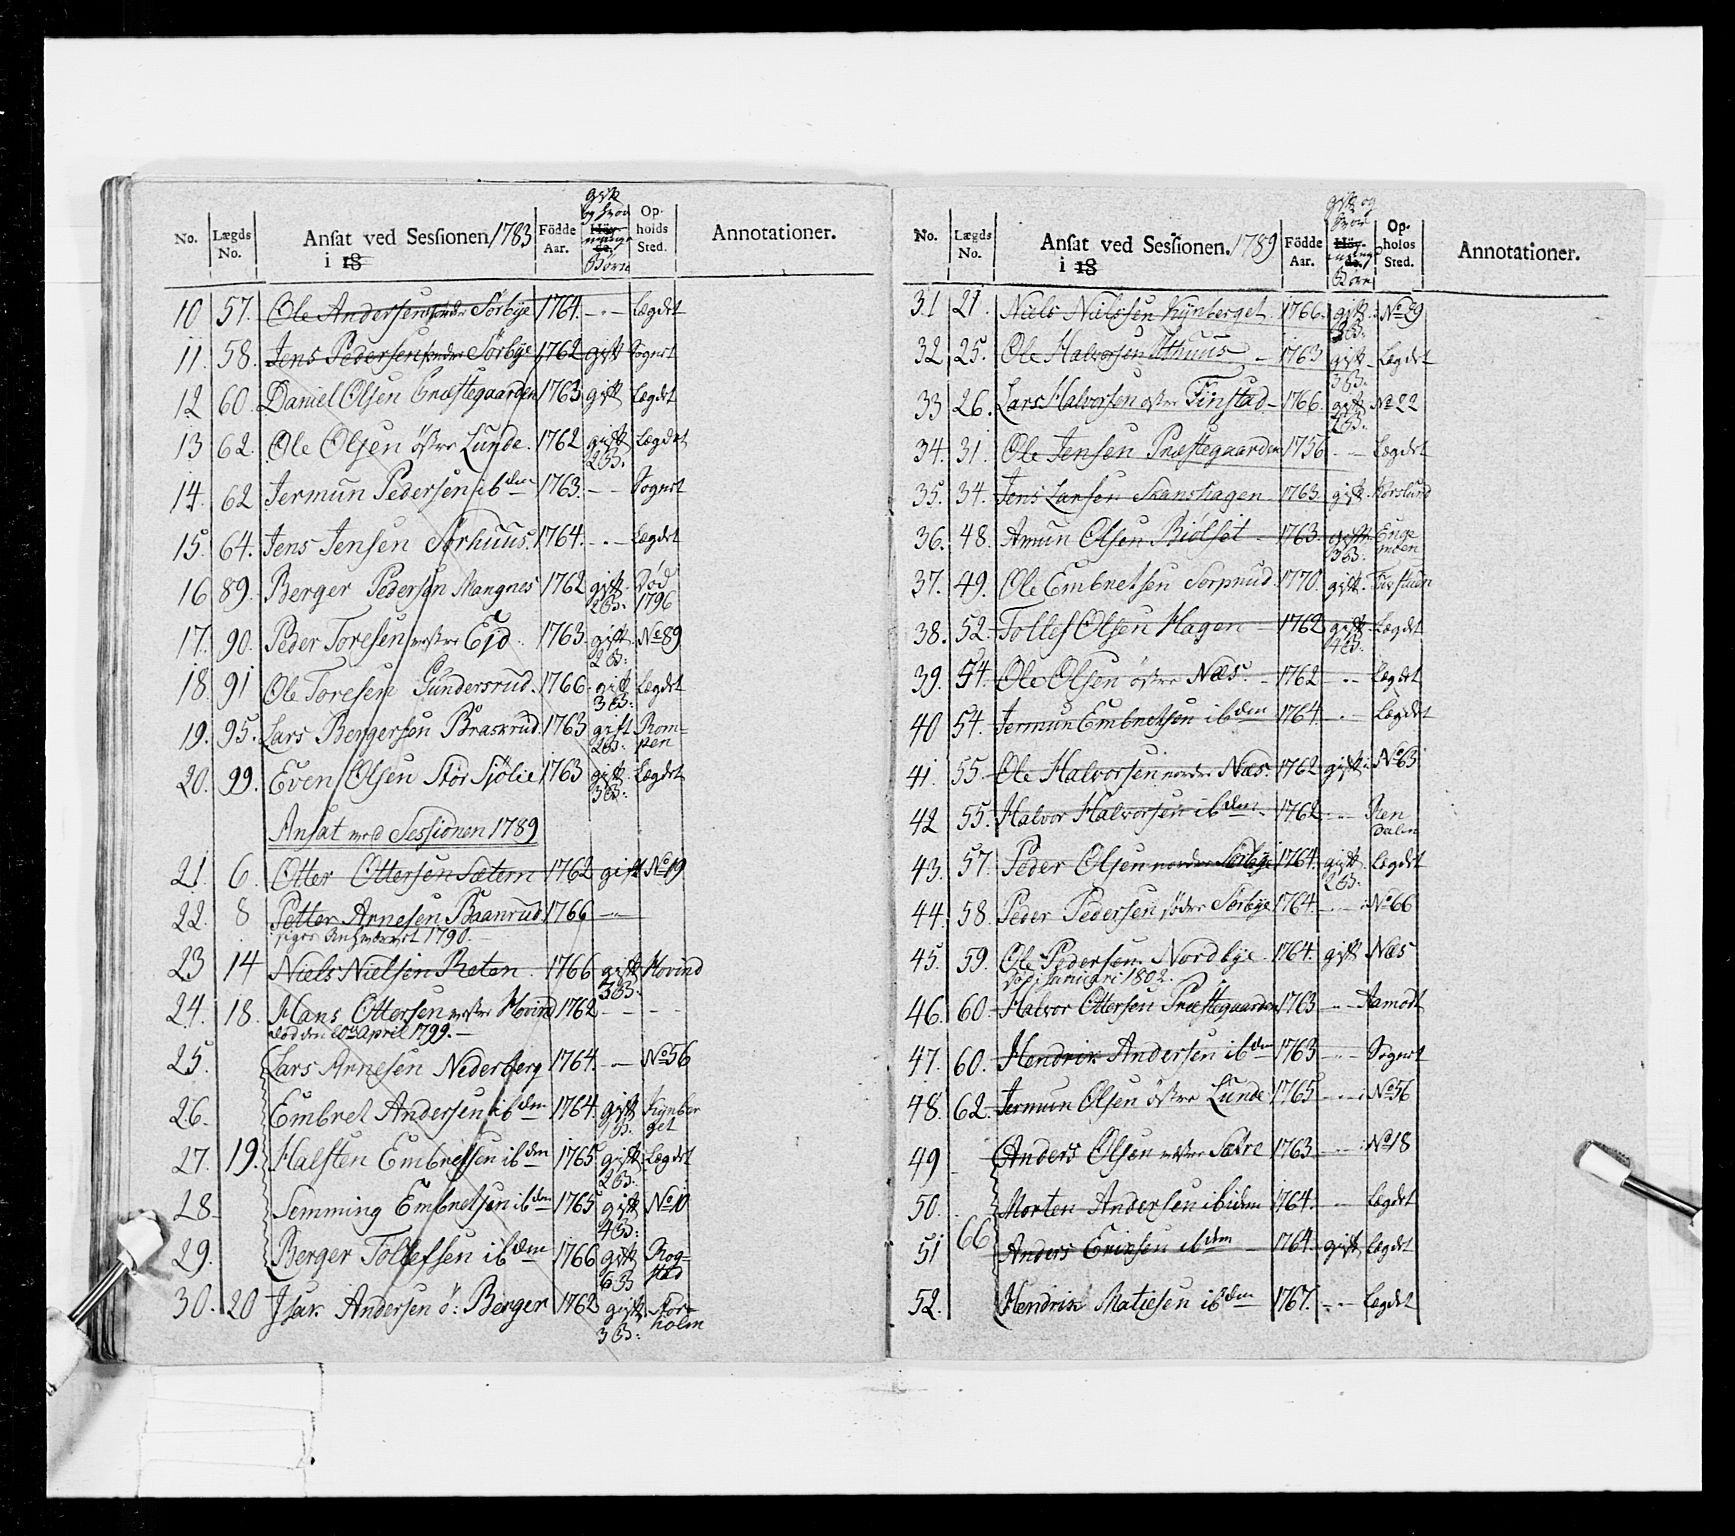 No. Lægds No. Ansat ved Sessionen 1783 i 18 Födde Aar. gift og hvor mange Børn Op- holds Sted. Annotationer.
10 57. Ole Andersen søndre Sørbye 1764. - Lægdet
11. 58. Jens Pedersen søndre Sørbye 1762 gift Sognet
12 60. Daniel Olsen Præstegaarden 1763 gift Lægdet
13 62. Ole Olsen östre Lunde. 1762 gift 2 B. Lægdet
14. 62 Jermun Pedersen ibdm 1763. - - Sognet
15. 64. Jens Jensen Sørhuus. 1764. - Lægdet
16 89. Berger Pedersen Mangnes 1762 gift 2 B: Død 1796
17. 90. Peder Toresen westre Ejd. 1763. gift 2 B: No 89
18. 91 Ole Toresen Gundersrud. 1766. gift 3 B: Lægdet
19. 95. Lars Bergersen Braskrud. 1763 gift 2 B: Rom- pen
20. 99. Even Olsen Stör Siölie 1763 gift 3 B: Lægdet
Ansat ved Sessionen 1789
21. 6. Otter Ottersen Sætern 1762 gift No 19
22. 8 Petter Arnesen Baanrud. 1766 -
1790.
23 14 Niels Nielsen Reten. 1766 gift 3 B: Hovind
24. 18. Hans Ottersen westre Hovind 1762 - - -
død den 10de April 1799. -
25. Lars Arnesen Nederberg 1764. - No 56
26. Embret Andersen ibdm 1764. gift B. Kynber get
27. 19. Halsten Embretsen ibdm 1765. gift 2 B: Lægdet
28. Semming Embretsen ibdm 1765 gift 4 B: No 10
29. Berger Tollefsen ibdm 1766 gift 6 B Rog- stad
30. 20 Isak Andersen ö: Berger 1762 gift 3 B: Stor- holm
No. Lægds No. Ansat ved Sessionen. 1789 i 18 Födde Aar. gift og hvor mange Børn Op- holds Sted. Annotationer.
31 21. Niels Nielssen Kynberget 1766. gift 3 B. No 89
32. 25. Ole Halvorsen Uthuus - 1763 gift 3 B. Lægdet
33 26. Lars Halvorsen östre Finstad - 1766. gift 2 B. No 22
34. 31. Ole Jensen Præstegaarden 1756. - Lægdet
35. 34. Jens Larsen Skanshagen 1763. gift.
36. 48. Amun Olsen Biölset 1763. gift 3 B. Enge moen
37. 49. Ole Embretsen Sorpnud. 1770. gift.
38. 52. Tollef Olsen Hagen 1762 gift 4 B. Lægdet
39. 54. Ole Olsen östre Næs. 1762 - Lægdet
40 54. Jermun Embretsen ibdm 1764 - Lægdet
41. 55. Ole Halvorsen nordre Næs. 1762 gift. No 63
42 55. Halvor Halvorsen ibdm - 1762 - Ren dalen
43. 57. Peder Olsen nordre Sørbye 1764. gift 2 B. Lægdet
44. 58. Peder Pedersen söndre Sörbye 1764. - No 66
45. 59. Ole Pedersen Nordbye. 1764. gift Næs
död i Januari 1802.
46. 60. Halvor Ottersen Præstegaarden 1763 - Aamodt
47. 60. Hendrik Andersen ibdm 1763 - Sognet
48. 62. Jermun Olsen östre Lunde 1765 - No 56
49 Anders Olsen westre Sætre 1763 - No 18
50. Morten Andersen ibidem 1764. - Lægdet
51 66 Anders Erixsen ibdm 1764. gift Lægdet
52. Hendrik Matiesen ibdm 1767. - Lægdet